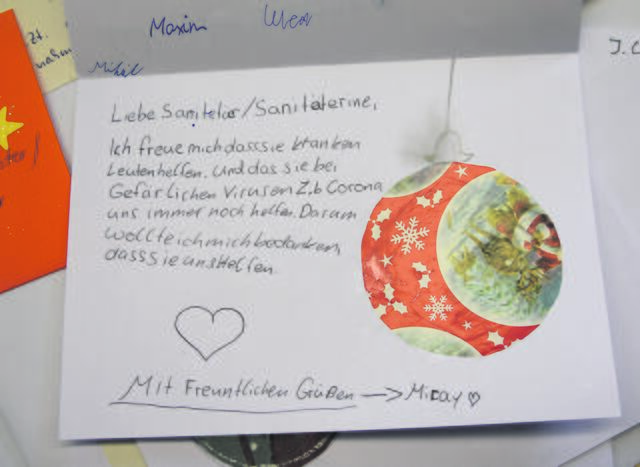 Maxim
Mihail
Liebe Saniteter/Sanitäterine,
Ich freue mich dasssie kranken
Leuten helfen. Und das sie bei
Gefärlichen Virusen Z.b Corona
uns immer noch helfen. Darum
wollte ich mich bedanken,
dass Sie uns Helfen.
Mit Freuntlichen Grüßen —> Miray ♡